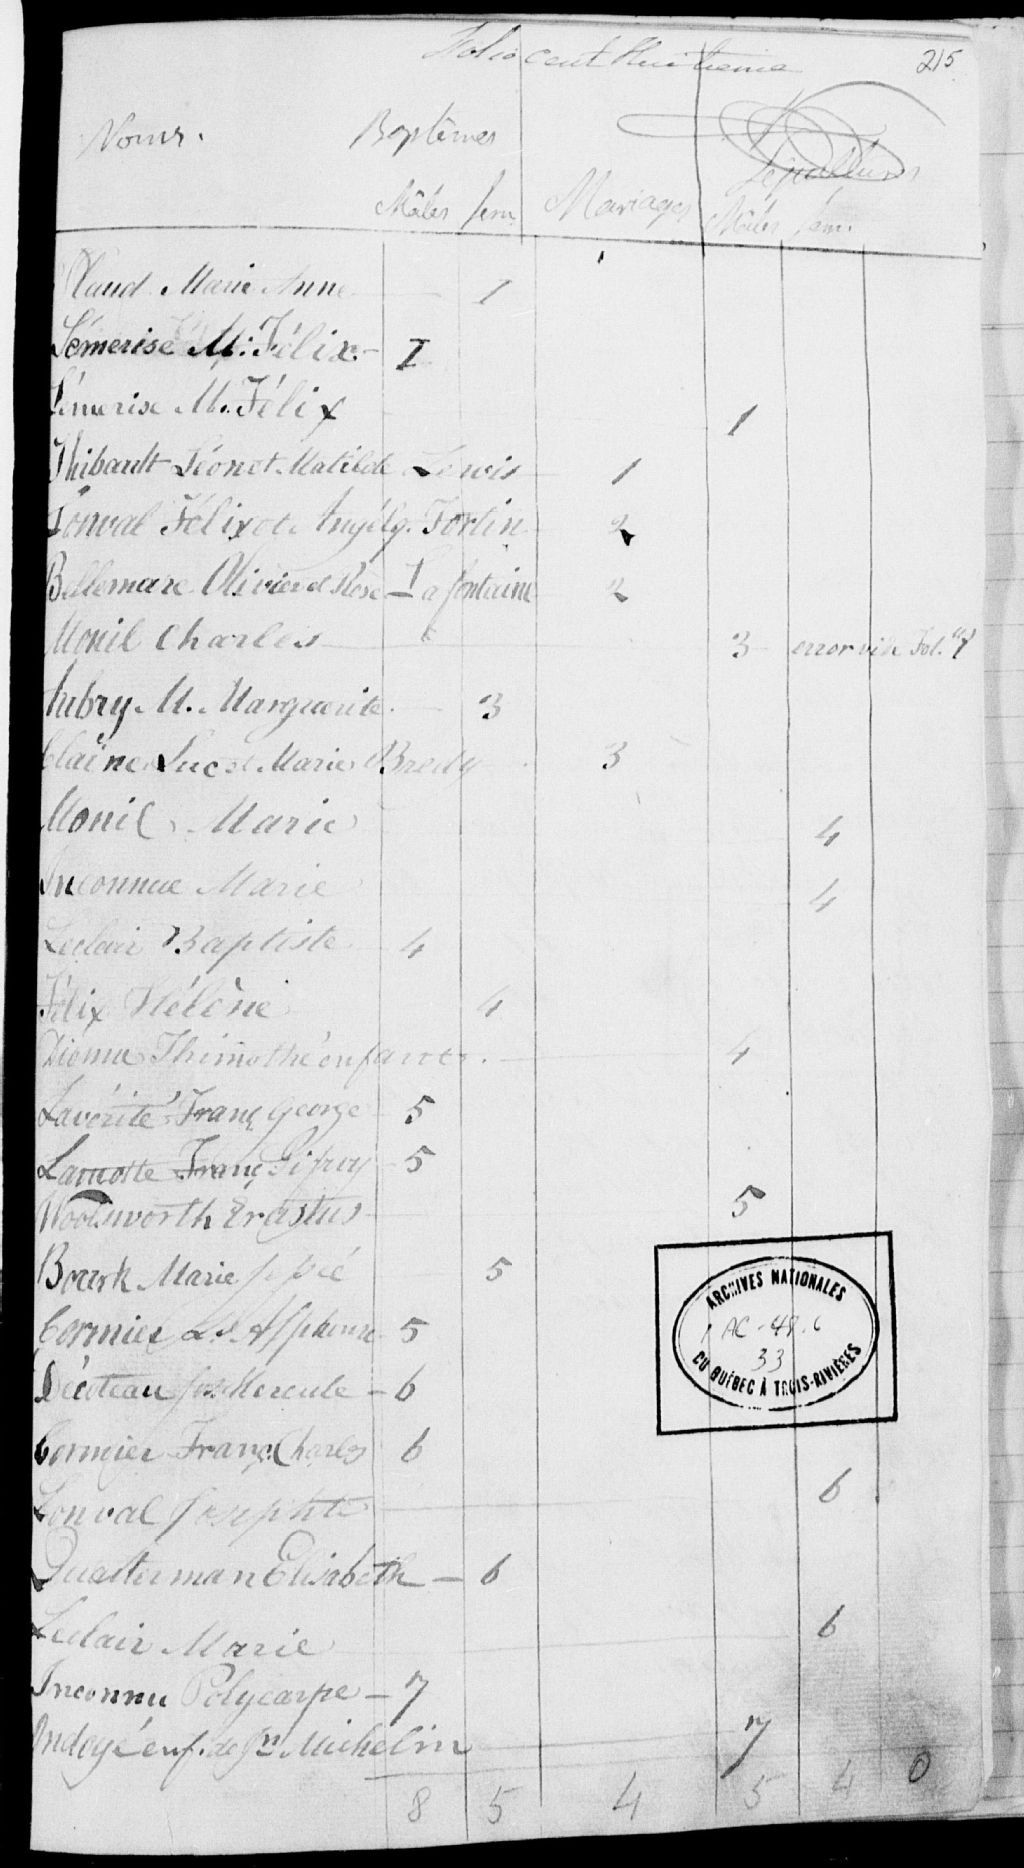 Folio cent huitieme
215
Noms. Baptêmes Sépultures
Mâles fem. Mariages Mâles fem.
Plaud Marie Anne 1
Lémerise M. Félix 1
Lémerise M. Félix 1
Thibault Léon et Matilde Lewis 1
Tonval Félix et Angélq. Fortin 2
Bellemare Olivier et Rose Lafontaine 2
Monil Charles 3 error vide Fol. 4
Aubry M. Marguerite 3
Claine Luc et Marie Bredy 3
Monil Marie 4
Inconnue Marie 4
Leclair Baptiste 4
Félix Hélène 4
Thimothé enfant 4
Lavérité Franç George 5
Lamotte Franç 5
Woolsworth Erastus 5
Bourk Marie 5
Cormier Ls Alphonse 5
Décoteau Jos. Hercule 6
Cormier Franç. Charles 6
Lonval Josephte 6
Quarterman Elisabeth 6
Leclair Marie 6
Inconnu Polycarpe 7
Ondoyé enf. de Jn Michelin 7
8 5 4 5 4 0
ARCHIVES NATIONALES
AC-49.6
33
DU QUÉBEC À TROIS-RIVIÈRES